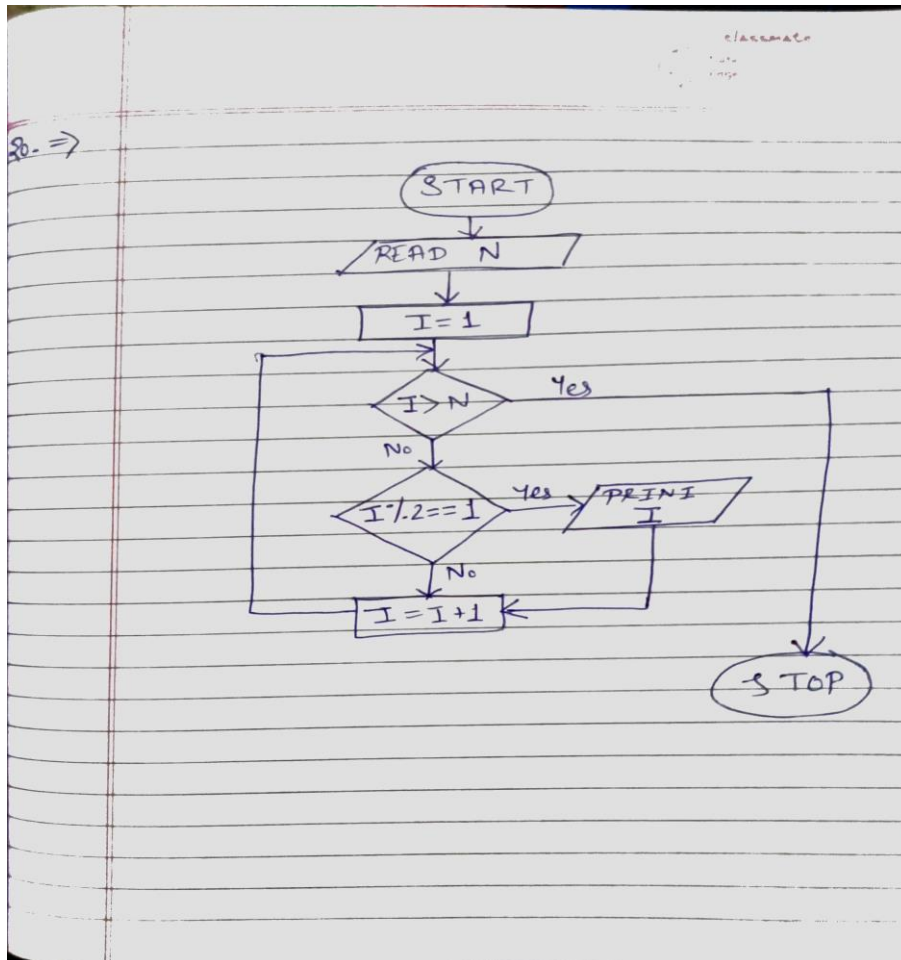 classmate
20. =>
START
READ N
I = 1
I > N
Yes
No
I % 2 == 1
Yes
PRINT
I
No
I = I + 1
STOP